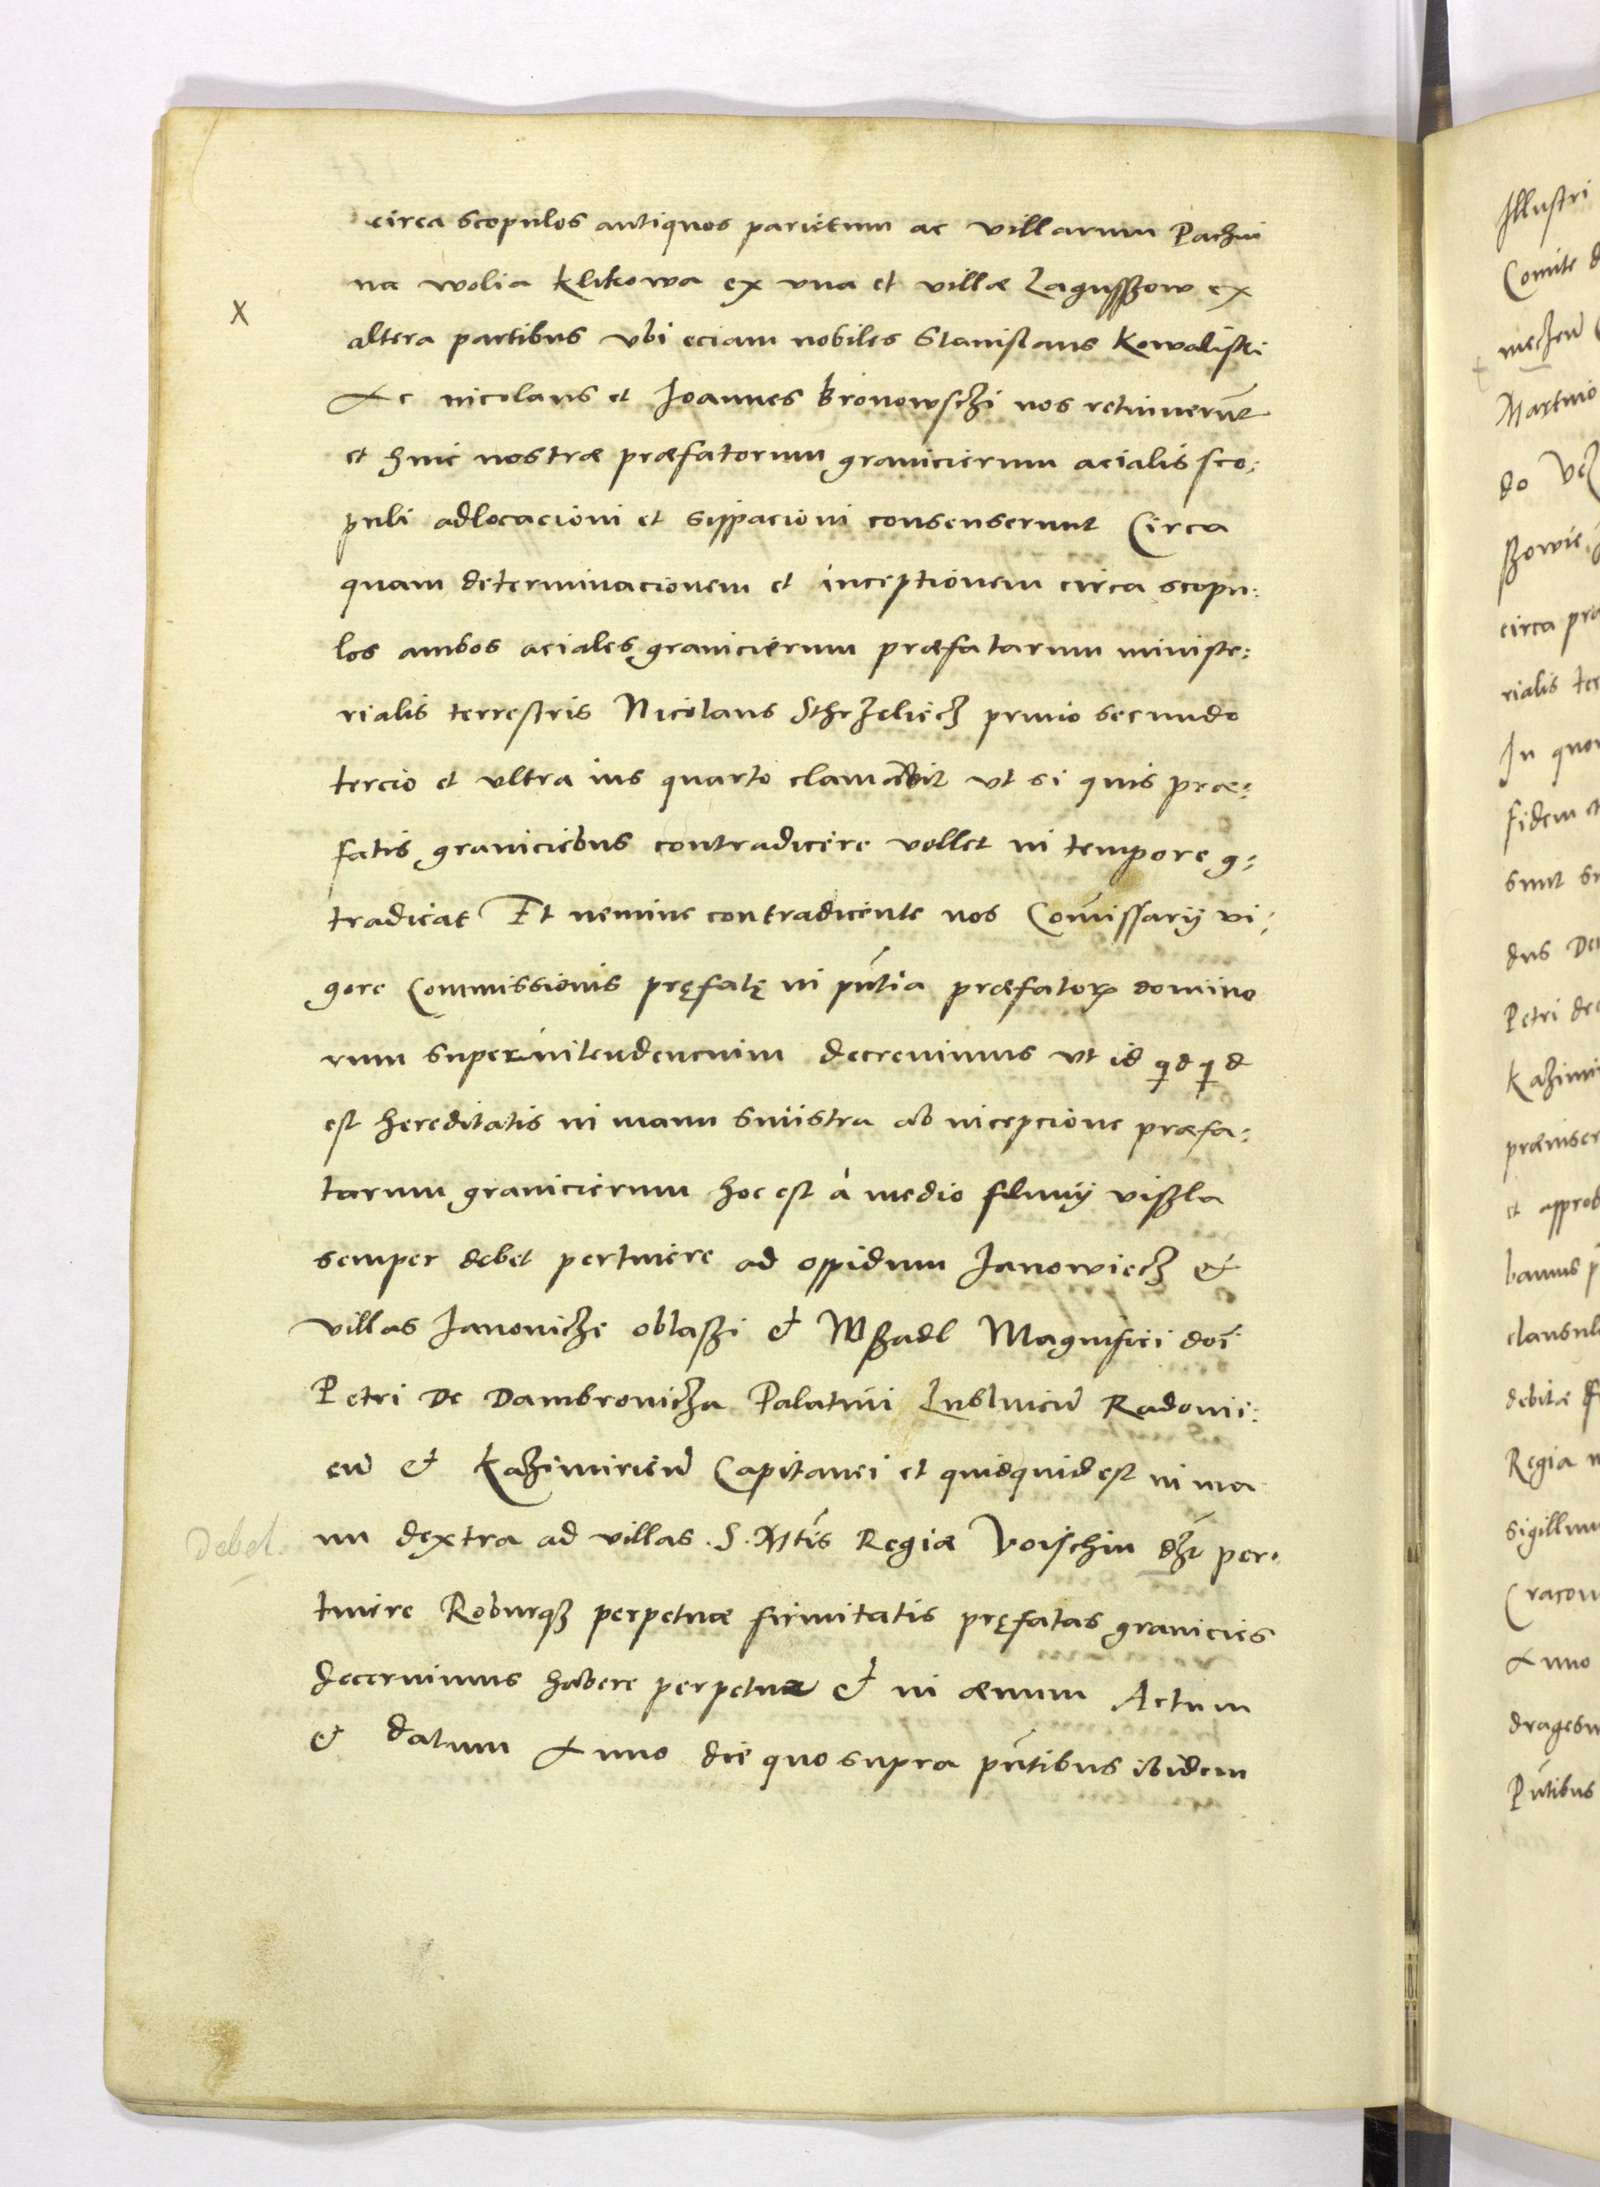 circa scopulos antiquos parietum ac villarum Pachni
na wolia Klikowa ex vna et villæ Lagusszow ex
X
altera partibus vbi eciam nobiles Stanislaus Kowaliski
Ac nicolaus et Joannes Bronowschi nos retinuerūt
et huic nostræ præfatorum granicierum acialis sco:
puli adlocacioni et sippacioni consenserunt Circa
quam determinacionem et inceptionem circa scopu:
los ambos aciales granicierum præfatarum ministe:
rialis terrestris Nicolaus Sthrzeliecz primo secundo
tercio et vltra ius quarto clamabit vt si quis præ:
fatis graniciebus contradicere vellet in tempore 9:
tradicat Et nemine contradicente nos Com̄issarij vi:
gore Commissionis pręfatę in pn̄tia præfatorꝝ domino
rum superintendencium decrevimus vt id qd qd
est hereditatis in manu sinistra ab incepcione præfa:
tarum granicierum hoc est à medio fluuij viszla
semper debet pertinere ad oppidum Janowiecz &
villas Janoviche oblaszi & Wszadl Magnifici doī
Petri De Dambrovicza Palatini Lublineñ Radomi:
eñ & Kazimirieñ Capitanei et quidquid est in ma
Debet.
nu dextra ad villas .S. Mtis Regiæ Voischin dzt per:
tinere Roburqȝ perpetuæ firmitatis pręfatas granicies
decernimus habere perpetuæ & in ævum Actum
& datum Anno die quo supra pn̄tibus ibidem
Illustri
Comite d
Martino
do
circa præ
rialis ter
In quor
fidem et
sunt
dns
Petri de
Kazimi
et approb
bamus
clausul
debitæ
Regia
sigillum
Cracou
Anno
Pn̄tibus